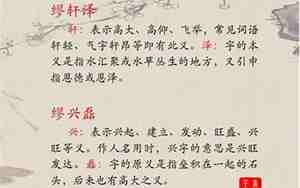 缪轩泽
轩：表示高大、高仰、飞举，常见词语
轩轾、气宇轩昂等即有此义。泽：字的本
义是指水汇聚或水草丛生的地方，又引申
指恩德或恩泽。
缪兴磊
兴：表示兴起、建立、发动、旺盛、兴
旺等义。作人名用时，兴字的意思是兴旺
发达。磊：字的原义是指垒积在一起的石
头，后来也有高大之义。